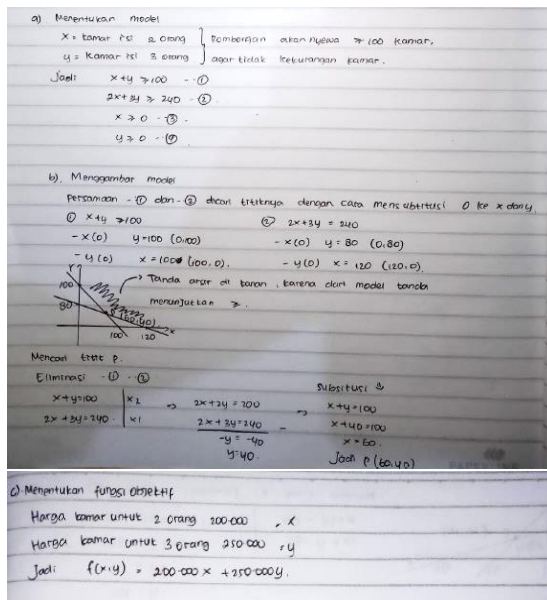 a) Menentukan model
x = kamar isi 2 orang } Rombongan akan nyewa ≥ 100 kamar,
y = Kamar isi 3 orang } agar tidak kekurangan kamar.
Jadi x+y ≥ 100 - - ①
2x+3y ≥ 240 - ②
x ≥ 0 - ③ -
y ≥ 0 - - ④
b). Menggambar model
Persamaan - ① dan - ② dicari titiknya dengan cara mensubtitusi 0 ke x dan y.
① x+y ≥ 100 ② 2x+3y = 240
- x(0) y=100 (0,100) - x(0) y = 80 (0,80)
- y(0) x = 100 (100,0). - y(0) x = 120 (120,0).
Y
100
80
P(60,40)
x
100 120
→ Tanda arsir di kanan, karena dari model tanda
menunjukkan ≥.
Mencari titik P.
Eliminasi - ① - ②
x+y=100 | x2 ⇒ 2x+2y = 200
2x+3y=240 | x1 2x+3y=240 -
-y = -40
y=40.
Subsitusi
⇒ x+y=100
x+40=100
x=60.
Jadi P (60,40)
c). Menentukan fungsi objektif
Harga kamar untuk 2 orang 200.000 , x
Harga kamar untuk 3 orang 250.000 , y
Jadi f(x,y) = 200.000x + 250.000y.